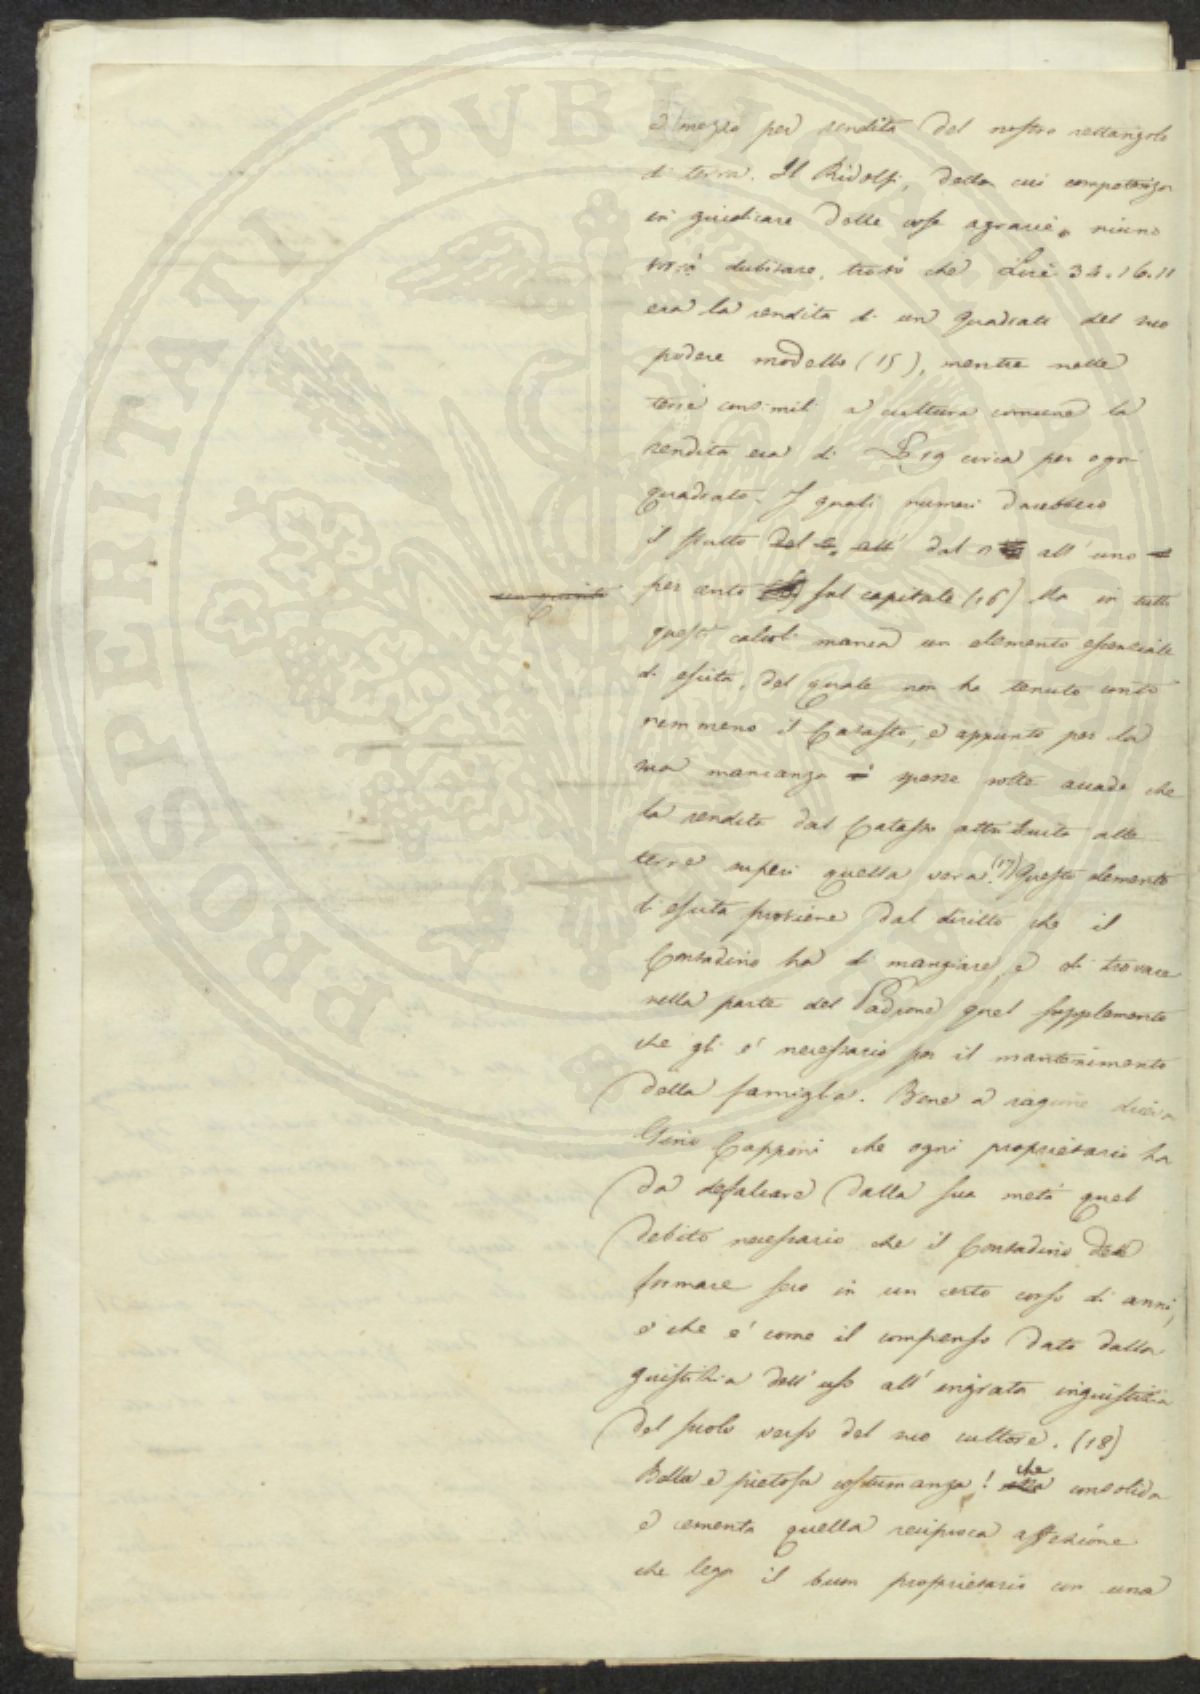 e mezzo per rendita del nostro rettangolo
di terra. Il Ridolfi, della cui competenza
in giudicare delle cose agrarie, niuno
vorrà dubitare, trovò che Lire 34.16.11
era la rendita di un quadrato del suo
podere modello (15), mentre nelle
terre consimili a cultura comune la
rendita era di £ 19 circa per ogni
quadrato. I quali numeri darebbero
il frutto del all' dal all' uno
per cento sul capitale (16) Ma in tutti
questi calcoli manca un elemento essenziale
di escita, del quale non ha tenuto conto
nemmeno il Catasto, e appunto per la
sua mancanza spesse volte accade che
la rendita dal Catasto attribuita alle
terre superi quella vera. (17) Questo elemento
di escita proviene dal diritto che il
Contadino ha di mangiare, e di trovare
nella parte del Padrone quel supplemento
che gli è necessario per il mantenimento
della famiglia. Bene a ragione diceva
Gino Capponi che ogni proprietario ha
da defalcare dalla sua metà quel
debito necessario che il Contadino dee
formare seco in un certo corso di anni,
e che è come il compenso dato dalla
giustizia dell' uso all' ingrata ingiustizia
del suolo verso del suo cultore. (18)
Bella e pietosa costumanza! che consolida
e cementa quella reciproca affezione
che lega il buon proprietario con una